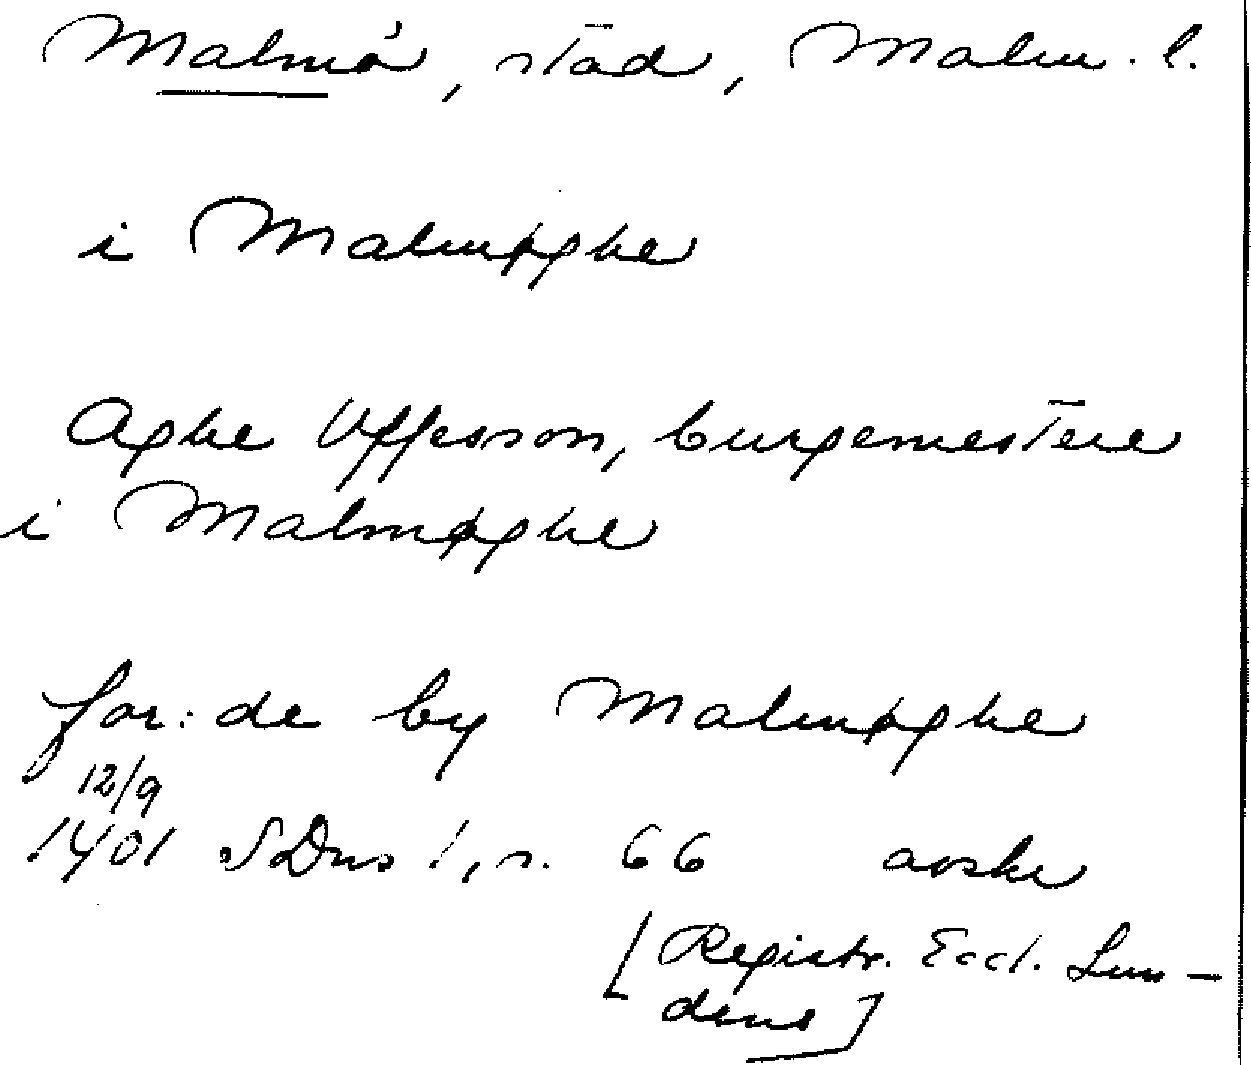 Malmö, stad, Malm. l.
i Malmøghe
Aghe Vffesson, burgemestere
i Malmøghe
for: de by Malmøghe
12/9
1401 SDns 1, s. 66 avskr
[Registr. Eccl. Lun-
dens]